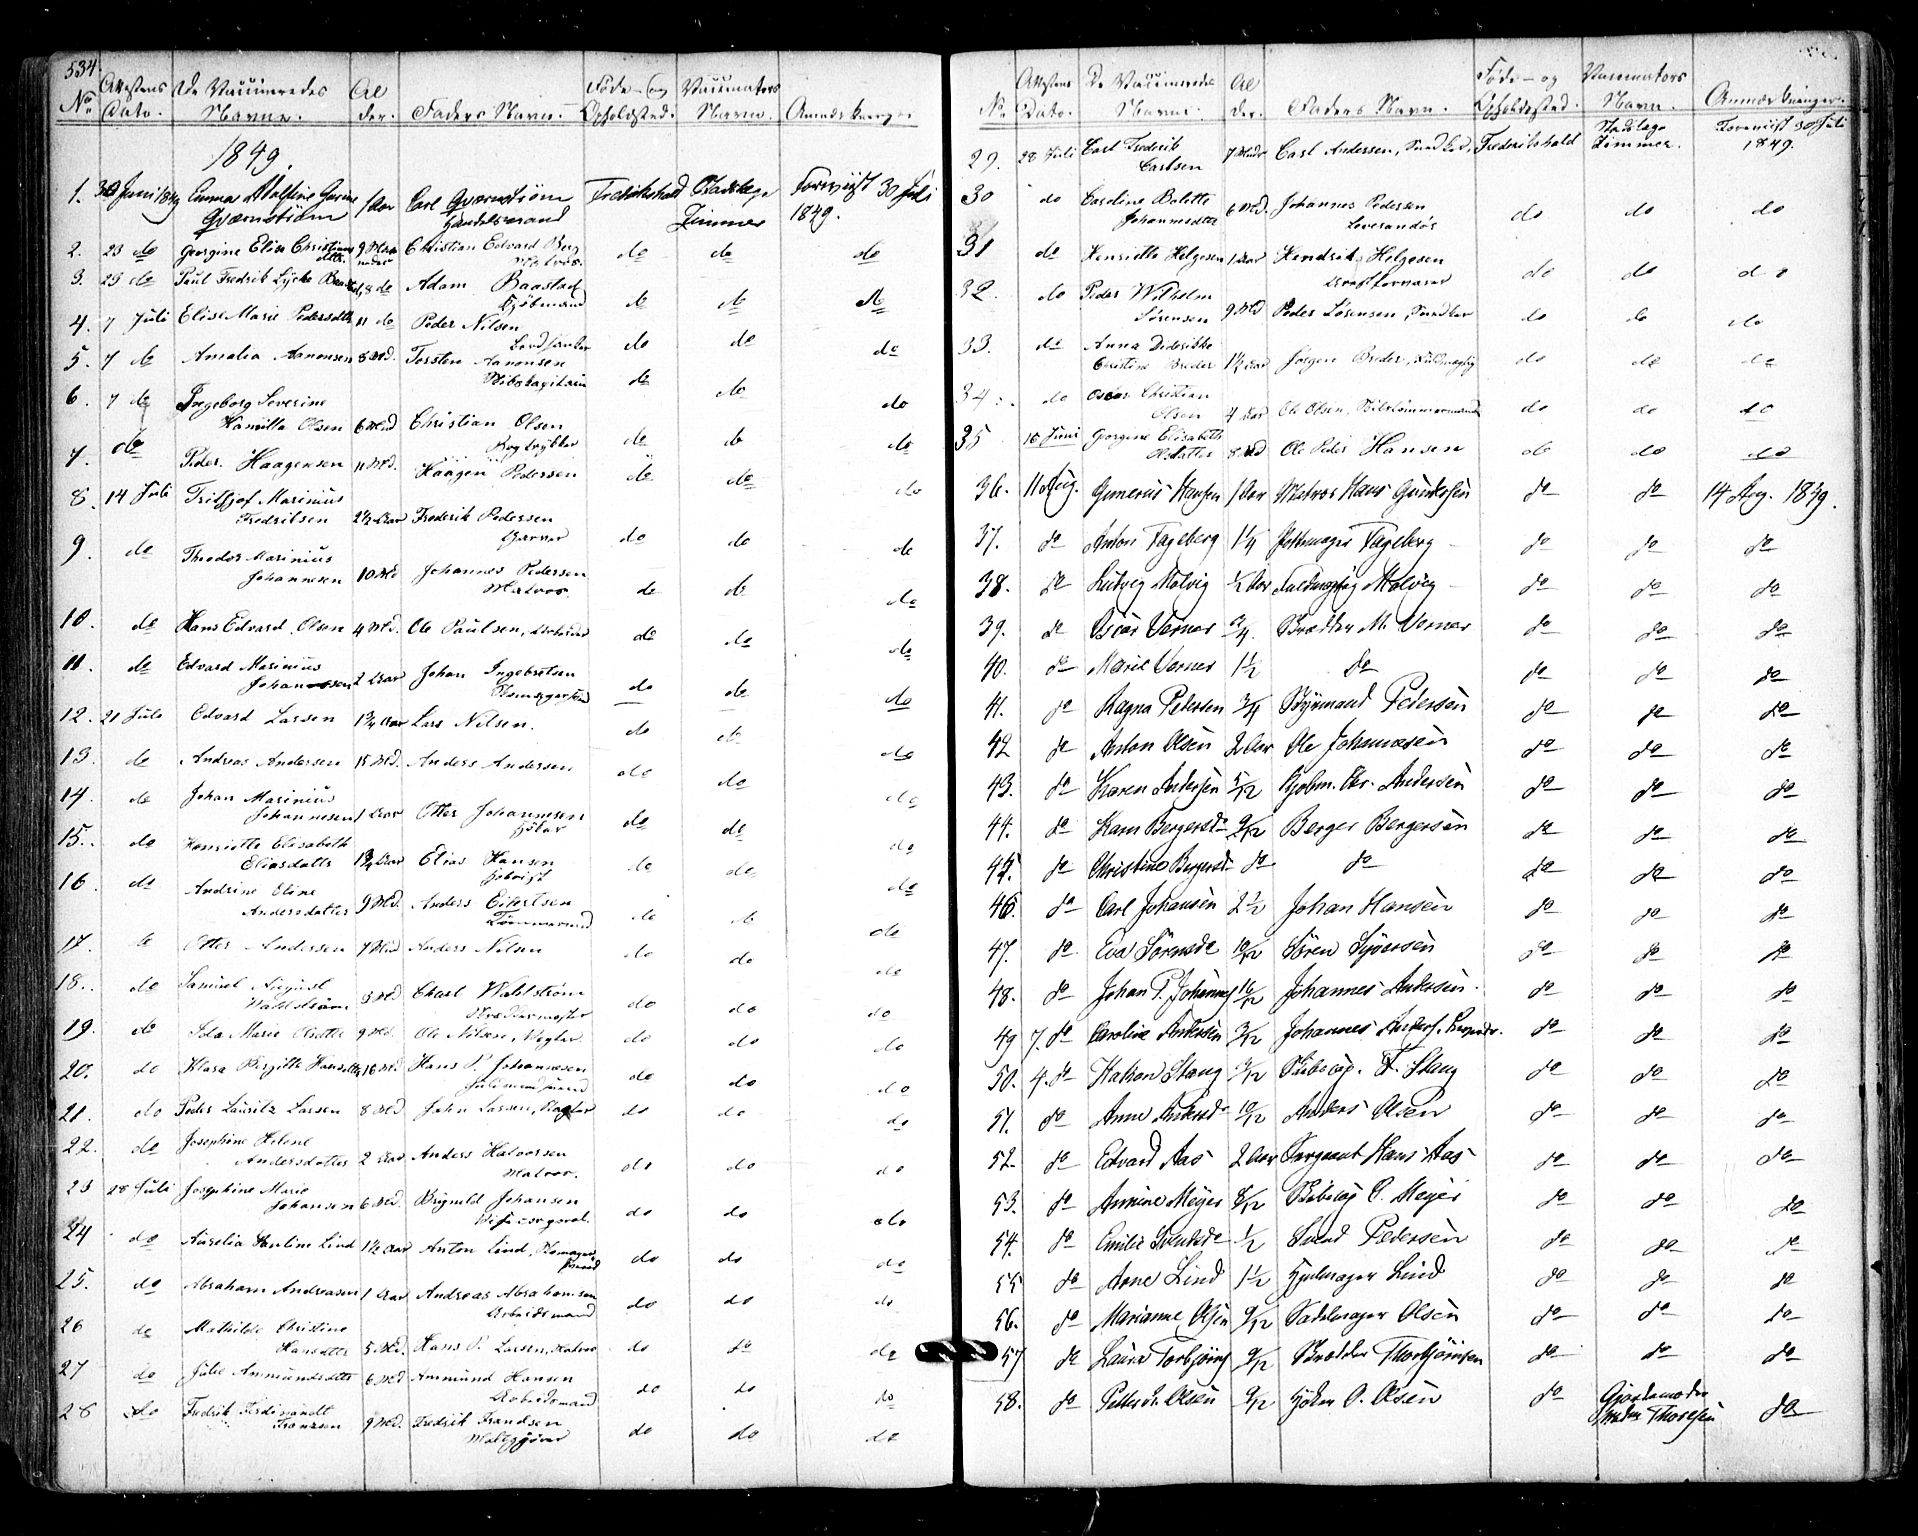 534
No Attestens Dato. De Vaccineredes Navne. Alder. Faders Navn. Føde- og Opholdssted. Vaccinators Navn. Anmærkninger
1849.
1. 30 Juni 1849 Emma Gurine 1 Aar Carl Fredrikshald Stadslæge Zimmer Foreviist 30 Juli 1849.
2. 23 do Georgine Elise Christians dttr. 9 Maaneder Christian Edvard Berg Matros. do do do
3. 29 do Paul Fredrik Lycke 8 do Adam Baastad Kjøbmand do do do
4. 7 Juli Elise Marie Pedersdtter 11 do Peder Nilsen do do do
5. 7 do Amalia Aanonsen 8 Md. Torsten Aanonsen Skibskapitain do do do
6. 7 do Ingeborg Severine Kamilla Olsen 6 Md Christian Olsen Bogtrykker do do do
7. do Peder Haagensen 11 Md. Haagen Pedersen do do do
8. 14 Juli Fritjof Marinius Fredriksen 2½ Aar Frederik Pedersen Garver do do do
9. do Theodor Marinius Johannesen 10 Md Johannes Pedersen Matros. do do do
10. do Hans Edvard Olsen 4 Md. Ole Paulsen, Arbeider do do do
11. do Edvard Marinius Johannesen 2 Aar Johan Ingebretsen do do do
12. 21 Juli Edvard Larsen 1¾ Aar Lars Nilsen. do do do
13. do Andreas Andersen 15 Md. Anders Andersen do do do
14. do Johan Marinius Johannesen 1 Aar Otter Johannesen do do do
15. do Henriette Elisabeth Eliasdatter 1¾ Aar Elias Hansen do do do
16. do Andrine Eline Andersdatter 9 Md. Anders Eilertsen Tømmermand do do do
17. do Otter Andersen 7 Md Anders Nilsen do do do
18. do Samuel August Wahlstrøm 3 Md Charl Wahlstrøm do do do
19. do Ida Marie Olsdtter 9 Md. Ole Nilsen, Vægter do do do
20. do Klara Birgitte Hansdtter 16 Md Hans P. Johannesen do do do
21. do Peder Lauritz Larsen 8 Md John Larsen, do do do
22. do Josephine Helene Andersdatter 2 Aar Anders Halvorsen Matros. do do do
23 28 Juli Josephine Marie Johansen 6 Md. Brynild Johansen do do do
24 do Aurelia Pauline Lind 1½ Aar Anton Lind, do do do
25. do Abraham Andreasen 1 Aar Andreas Abrahamsen Arbeidsmand do do do
26 do Mathilde Christine Hansdtter 5 Md. Hans P. Larsen, Matros do do do
27 do Julie Ammundsdtter 6 Md Ammund Hansen Arbeidsmand do do do
28 do Fredrik Ferdinandt Franzsen 9 Md. Fredrik Frandsen do do do
No Attestens Dato. De Vaccineredes Navne. Alder. Faders Navn. Føde- og Opholdssted. Vaccinators Navn. Anmærkninger.
29. 28 Juli Carl Frederik Carlsen 7 Mdr Carl Andersen, Fredrikshald Stadslæge Zimmer. Foreviist 30 Juli 1849.
30 do Caroline Bolette Johannesdtter 6 Md. Johannes Pedersen do do do
31 do Henriette Helgesen 1 Aar Hendrik Helgesen do do do
32. do Peder Wilhelm Sørensen 9 Md Peder Sørensen, do do do
33. do Anna Dideriche Christine Breder 1½ Aar Jørgen Breder, do do do
34. do Oscar Christian Olsen 4 Aar Ole Olsen, Skibstømmermand do do do
35 16 Juni Georgine Elisabeth Olsdatter 8 Md Ole Peder Hansen do do do
36. 11 Aug. Gunerius Hansen 1 Aar Matros Hans Gundersen do do 14 Aug. 1849.
37. do Anton Fageberg 1¼ Fageberg do do do
38. do Ludvig Molvig ½ Aar Molvig do do do
39. do Oscar Verner M. Verner do do do
40. do Marie Verner 1½ do do do do
41. do Ragna Pedersen ¾ Styrmand Pedersen do do do
42 do Anton Olsen 2 Aar Ole Johannesen do do do
43. do Karen Andersen 5/12 Kjøbm. Chr. Andersen do do do
44. do Karn Bergersdr 9/12 Berger Bergersen do do do
45. do Christine Bergersdr do do do do do
46. do Carl Johansen 2½ Johan Hansen do do do
47. do Eva Sørensdr 10/12 Søren Syversen do do do
48. do Johan P. Johannes 10/12 Johannes Andersen. do do do
49 7. do Caroline Andersen 3/12 Johannes Anders. do do do
50. 4. do Hakon Stang 9/12 Skibscap. F. Stang do do do
51. do Anne Andersdr 10/12 Anders Olsen do do do
52. do Edvard Aas 2 Aar Sergeant Hans Aas do do do
53. do Annine Meyer 8/12 Skibscap C. Meyer do do do
54. do Emilie Svendsdr ½ Svend Pedersen do do do
55 do Anne Lind 1½ Hjulmager Lind do do do
56. do Marianne Olsen 9/12 Sadelmager Olsen do do do
57 do Laura Torbjørns 9/12 Thorbjørnsen do do do
58. do Petter Olsen 9/12 O. Olsen do Gjordemoder Thoresen do